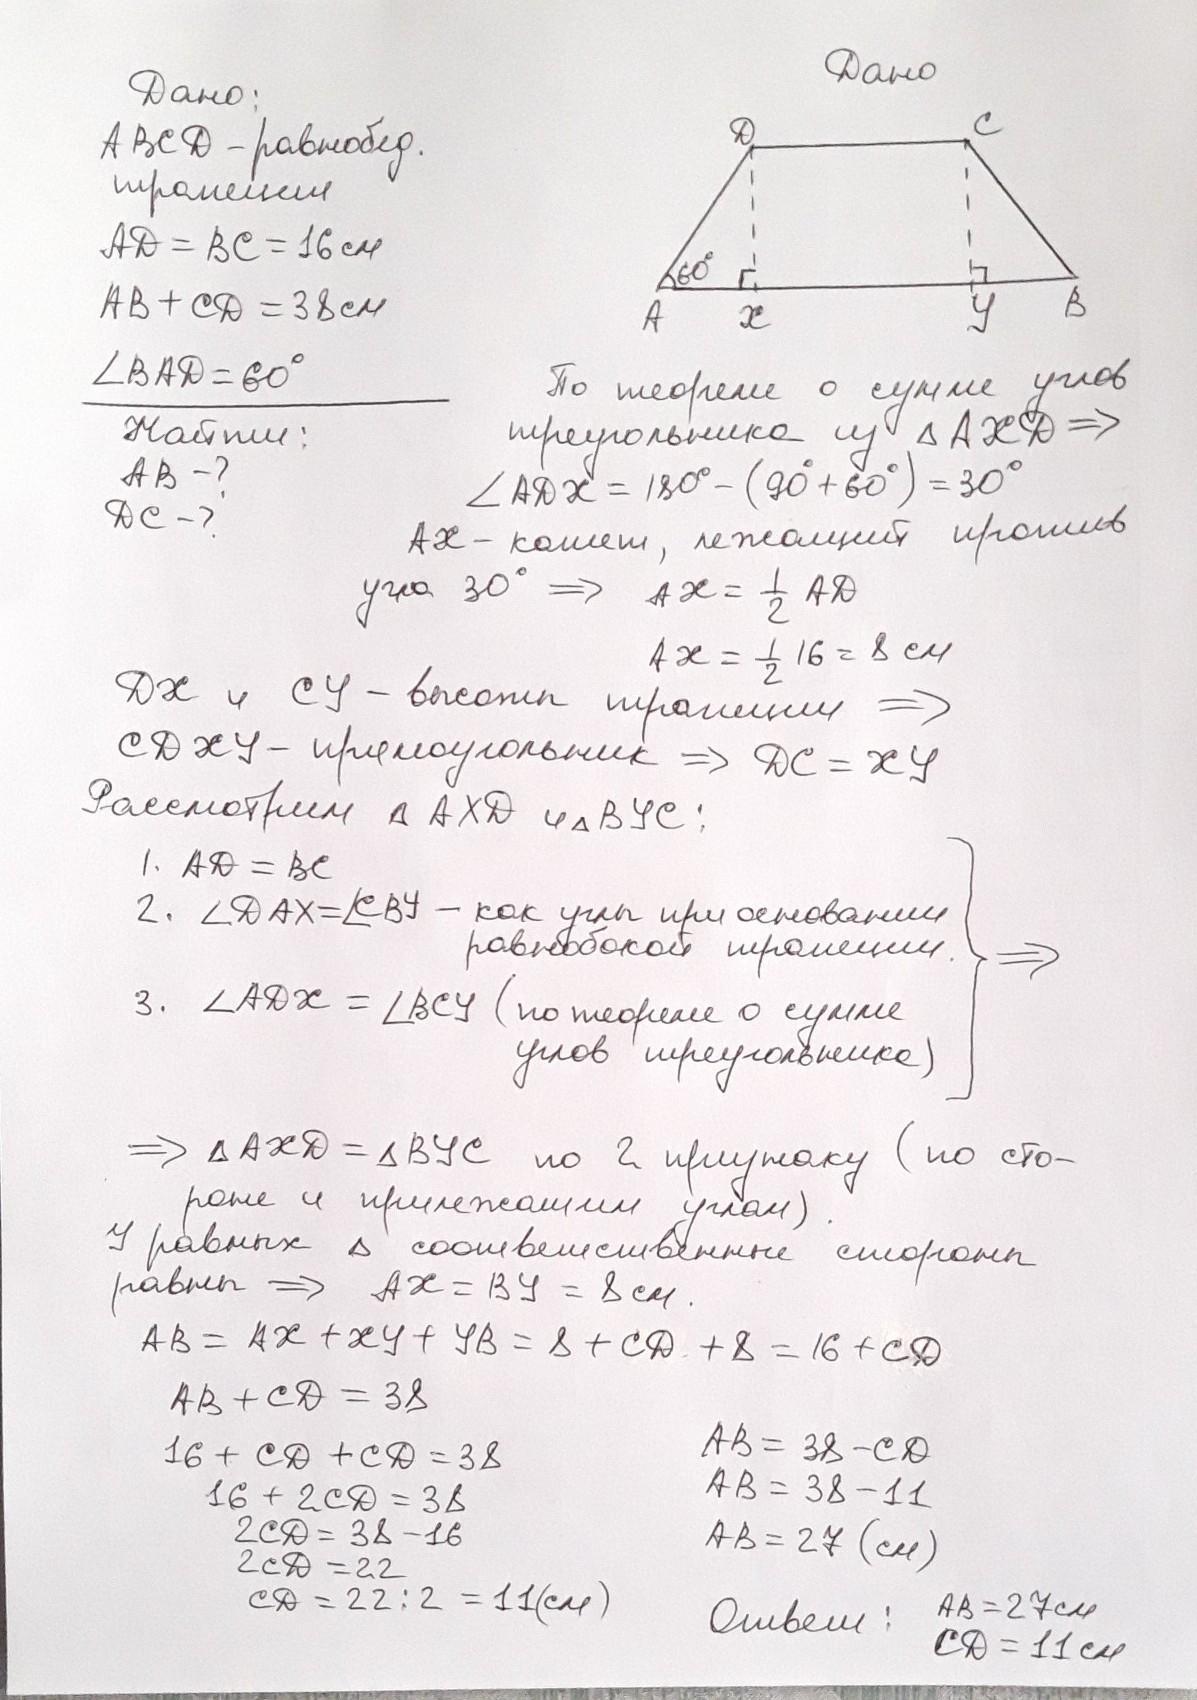 Дано:
ABCD – равнобед.
трапеции
AD = BC = 16 см
AB + CD = 38 см
∠BAD = 60°
Найти:
AB – ?
DC – ?
Дано
D
C
60°
A
X
Y
B
По теореме о сумме углов
треугольника из ΔAXD ⇒
∠ADX = 180° – (90° + 60°) = 30°
AX – катет, лежащий против
угла 30° ⇒ AX = 1/2 AD
AX = 1/2 16 = 8 см
DX и CY – высоты трапеции ⇒
CDXY – прямоугольник ⇒ DC = XY
Рассмотрим ΔAXD и ΔBYC:
1. AD = BC
2. ∠DAX = ∠CBY – как углы при основании
равнобокой трапеции.
3. ∠ADX = ∠BCY (по теореме о сумме
углов треугольника)
⇒
⇒ ΔAXD = ΔBYC по 2 признаку (по сто-
роне и прилежащим углам).
У равных Δ соответственные стороны
равны ⇒ AX = BY = 8 см.
AB = AX + XY + YB = 8 + CD + 8 = 16 + CD
AB + CD = 38
16 + CD + CD = 38
16 + 2CD = 38
2CD = 38 – 16
2CD = 22
CD = 22 : 2 = 11 (см)
AB = 38 – CD
AB = 38 – 11
AB = 27 (см)
Ответ: AB = 27 см
CD = 11 см